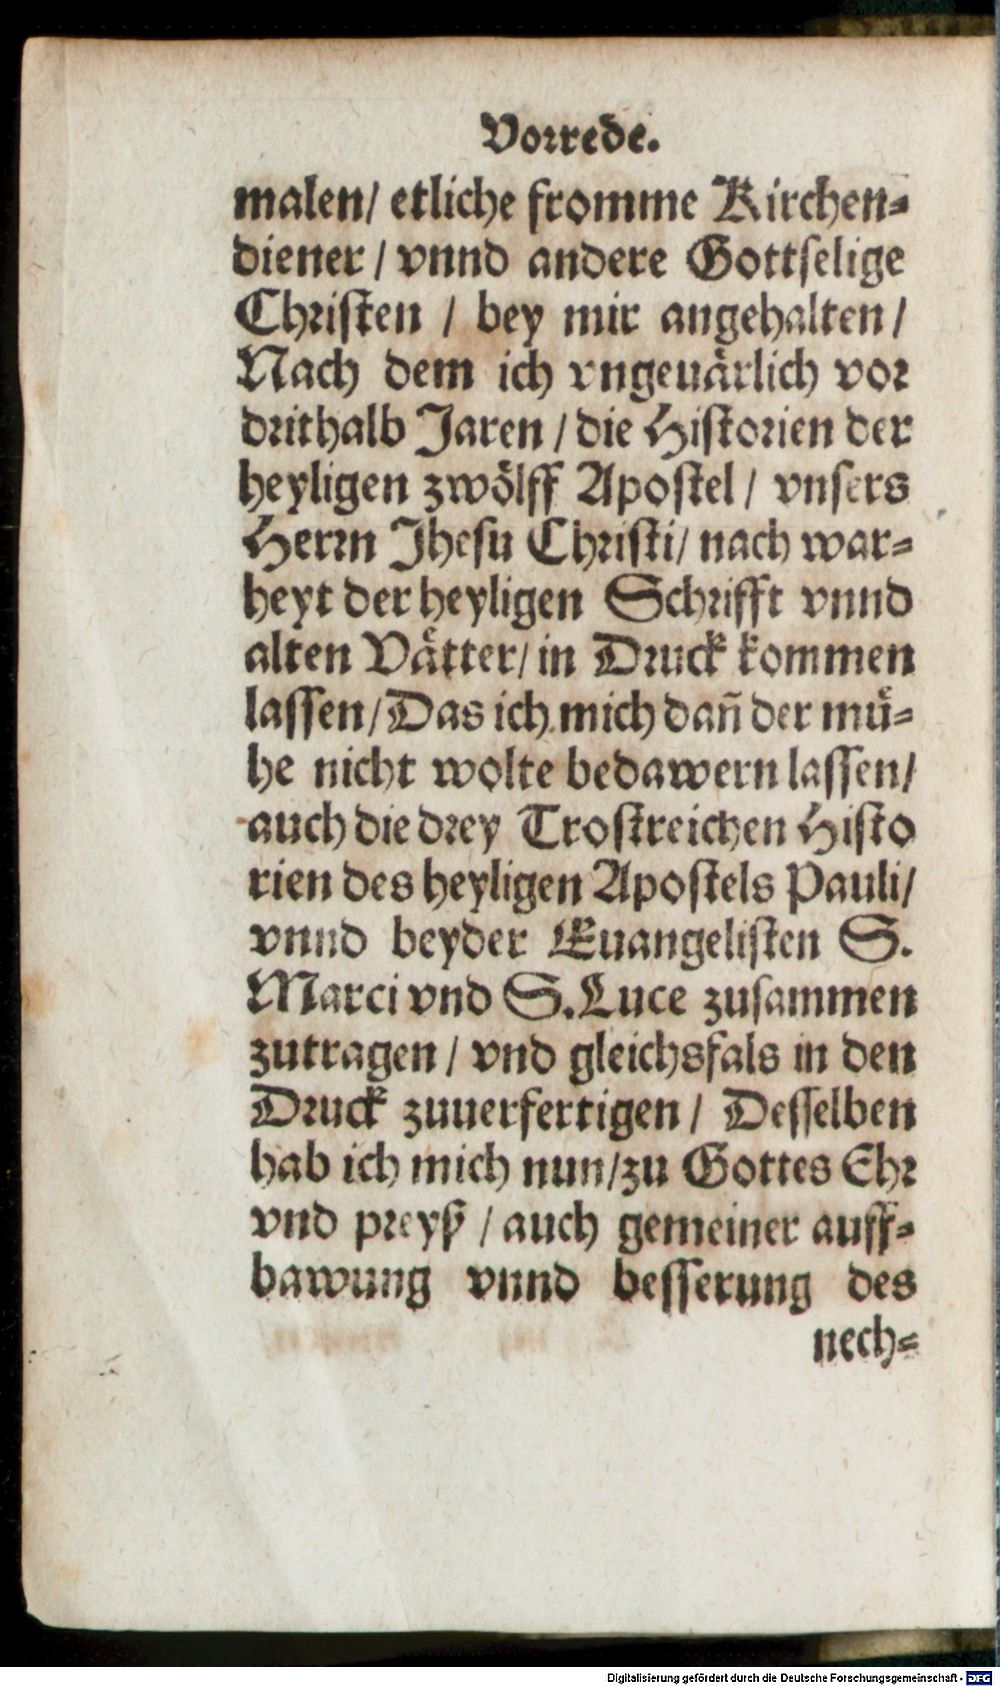 Vorrede.
malen/ etliche fromme Kirchen⸗
diener / vnnd andere Gottſelige
Chriſten / bey mir angehalten /
Nach dem ich vngeuaͤrlich vor
drithalb Jaren / die Hiſtorien der
heyligen zwoͤlff Apoſtel / vnſers
Herrn Jheſu Chriſti / nach war⸗
heyt der heyligen Schrifft vnnd
alten Vaͤtter / in Druck kommen
laſſen / Das ich mich dañ der muͤ⸗
he nicht wolte bedawern laſſen /
auch die drey Troſtreichen Hiſto
rien des heyligen Apoſtels Pauli /
vnnd beyder Euangeliſten S.
Marci vnd S. Luce zuſammen
zutragen / vnd gleichsfals in den
Druck zuuerfertigen / Deſſelben
hab ich mich nun / zu Gottes Ehr
vnd preyß / auch gemeiner auff⸗
bawung vnnd beſſerung des
nech⸗
Digitalisierung gefördert durch die Deutsche Forschungsgemeinschaft - DFG